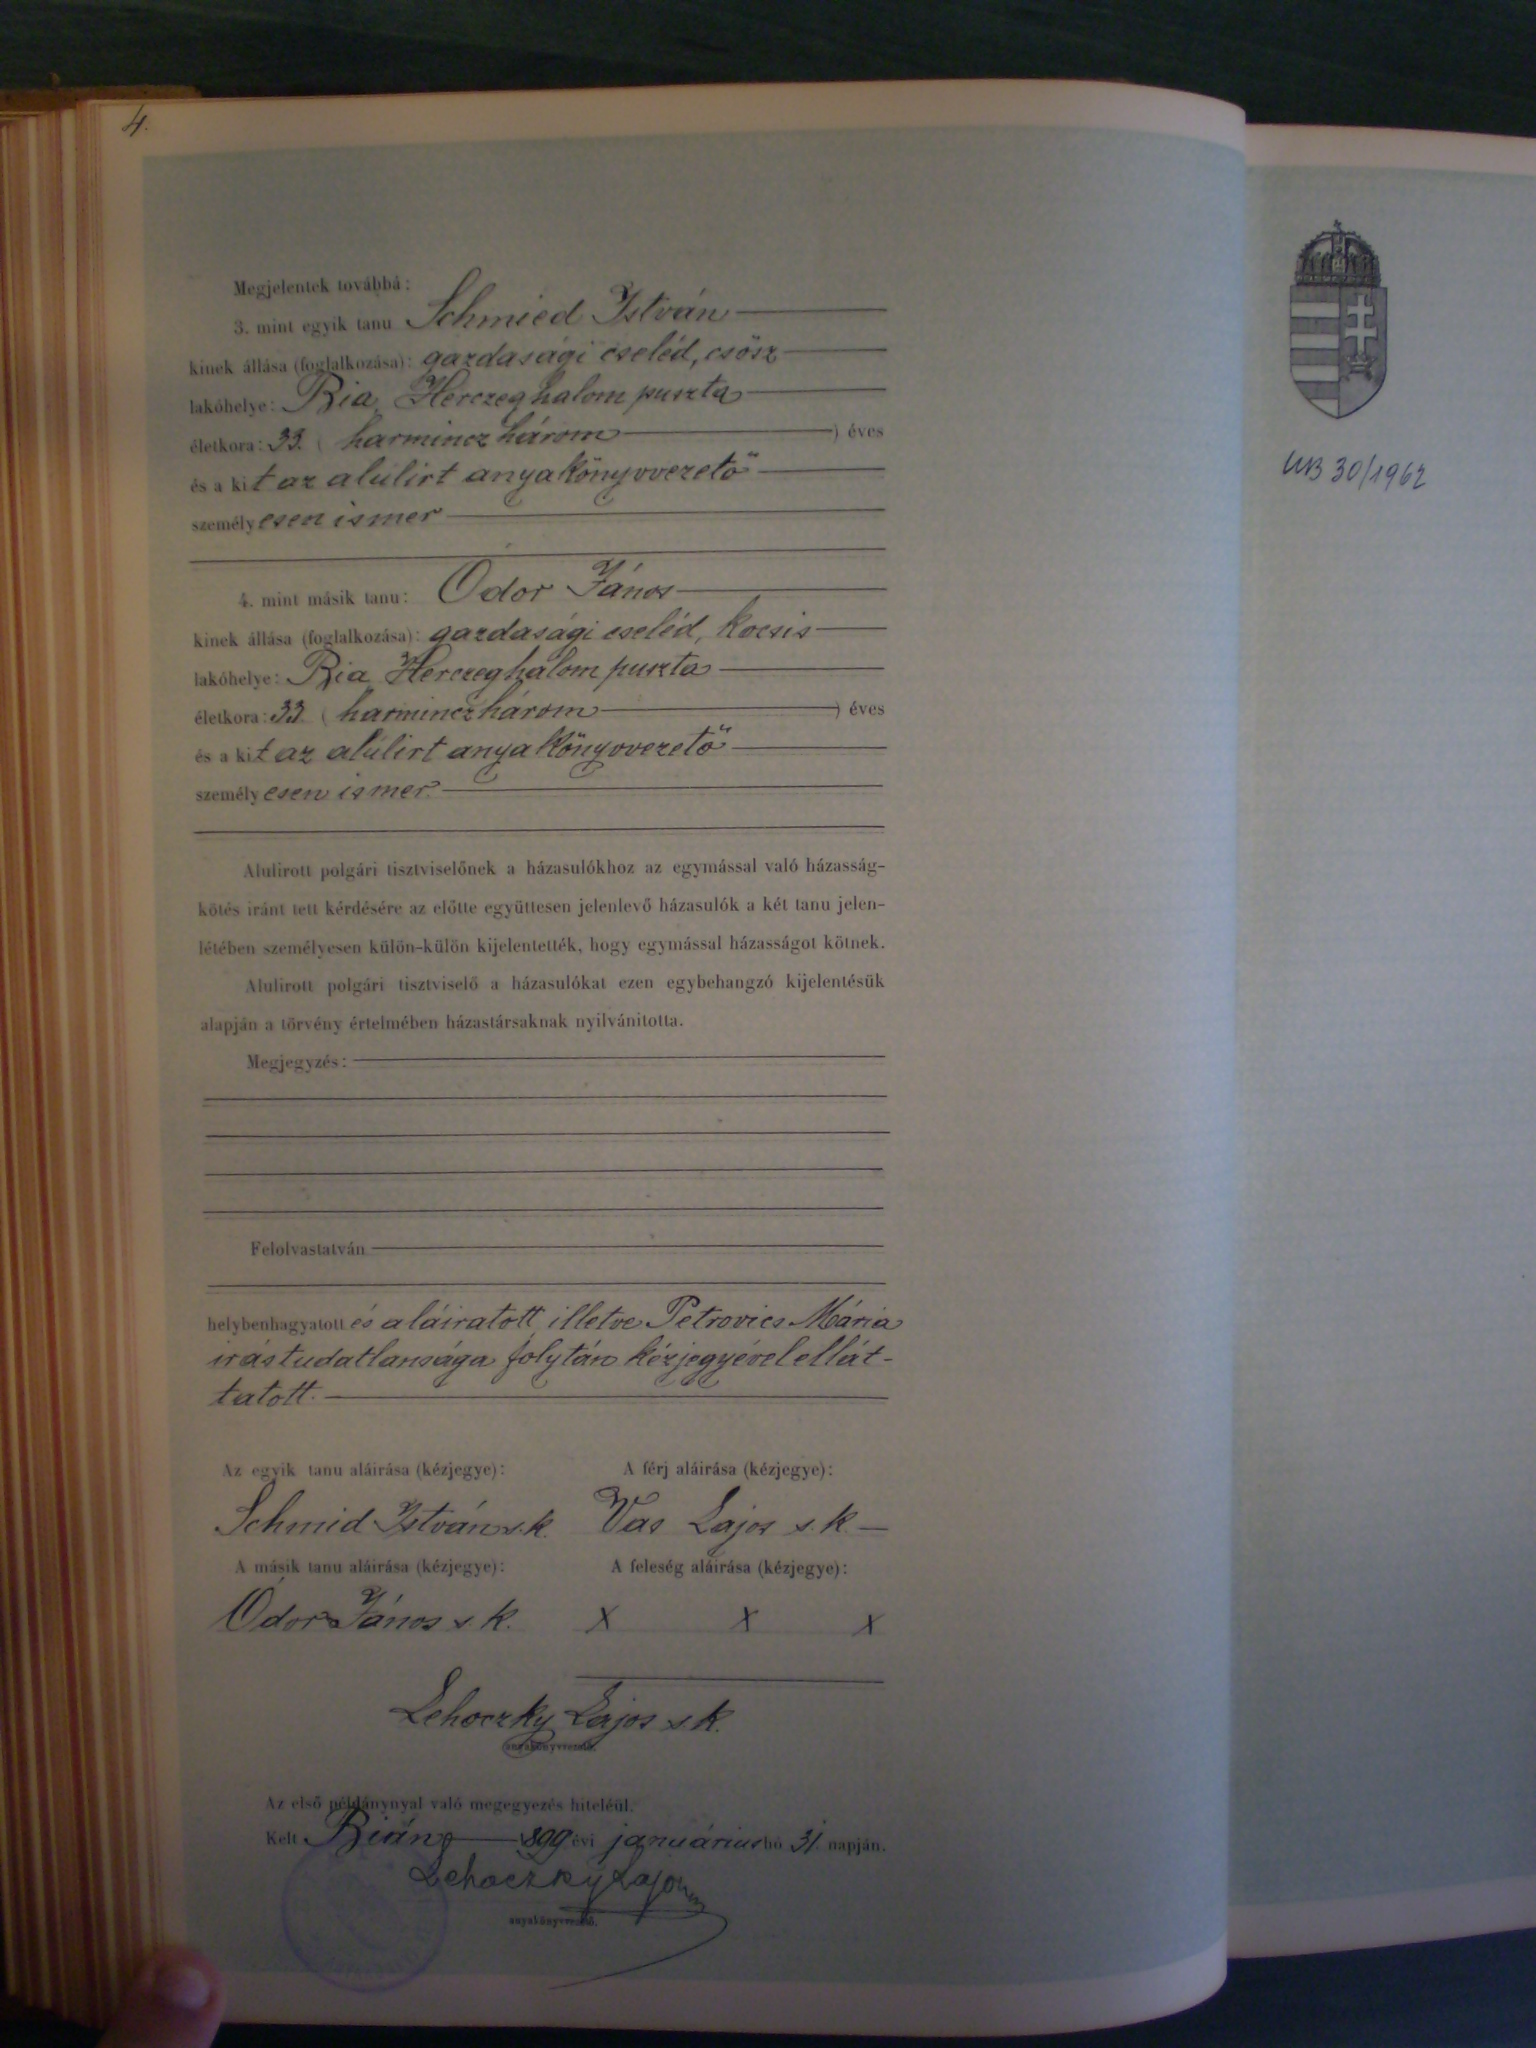 4.
Megjelentek továbbá:
3. mint egyik tanu Schmied István
kinek állása (foglalkozása): gazdasági cseléd, csősz
lakóhelye: Bia Herczeghalom puszta
életkora: 33. ( harmincz három ) éves
és a kit az alúlirt anyakönyvvezető
személyesen ismer
4. mint másik tanu: Ódor János
kinek állása (foglalkozása): gazdasági cseléd, kocsis
lakóhelye: Bia Herczeghalom puszta
életkora: 33. ( harmincz három ) éves
és a kit az alúlirt anyakönyvvezető
személyesen ismer.
Alulirott polgári tisztviselőnek a házasulókhoz az egymással való házasság-
kötés iránt tett kérdésére az előtte együttesen jelenlevő házasulók a két tanu jelen-
létében személyesen külön-külön kijelentették, hogy egymással házasságot kötnek.
Alulirott polgári tisztviselő a házasulókat ezen egybehangzó kijelentésük
alapján a törvény értelmében házastársaknak nyilvánitotta.
Megjegyzés:
Felolvastatván
helybenhagyatott és aláiratott illetve Petrovics Mária
irástudatlansága folytán kézjegyével ellát-
tatott.
Az egyik tanu aláirása (kézjegye): A férj aláirása (kézjegye):
Schmid István s. k. Vas Lajos s. k.
A másik tanu aláirása (kézjegye): A feleség aláirása (kézjegye):
Ódor János s. k. X X X
Lehoczky Lajos s. k.
anyakönyvvezető.
Az első példánynyal való megegyezés hiteléül.
Kelt Bián 1899 évi januárius hó 31. napján.
Lehoczky Lajos
anyakönyvvezető.
30/1962